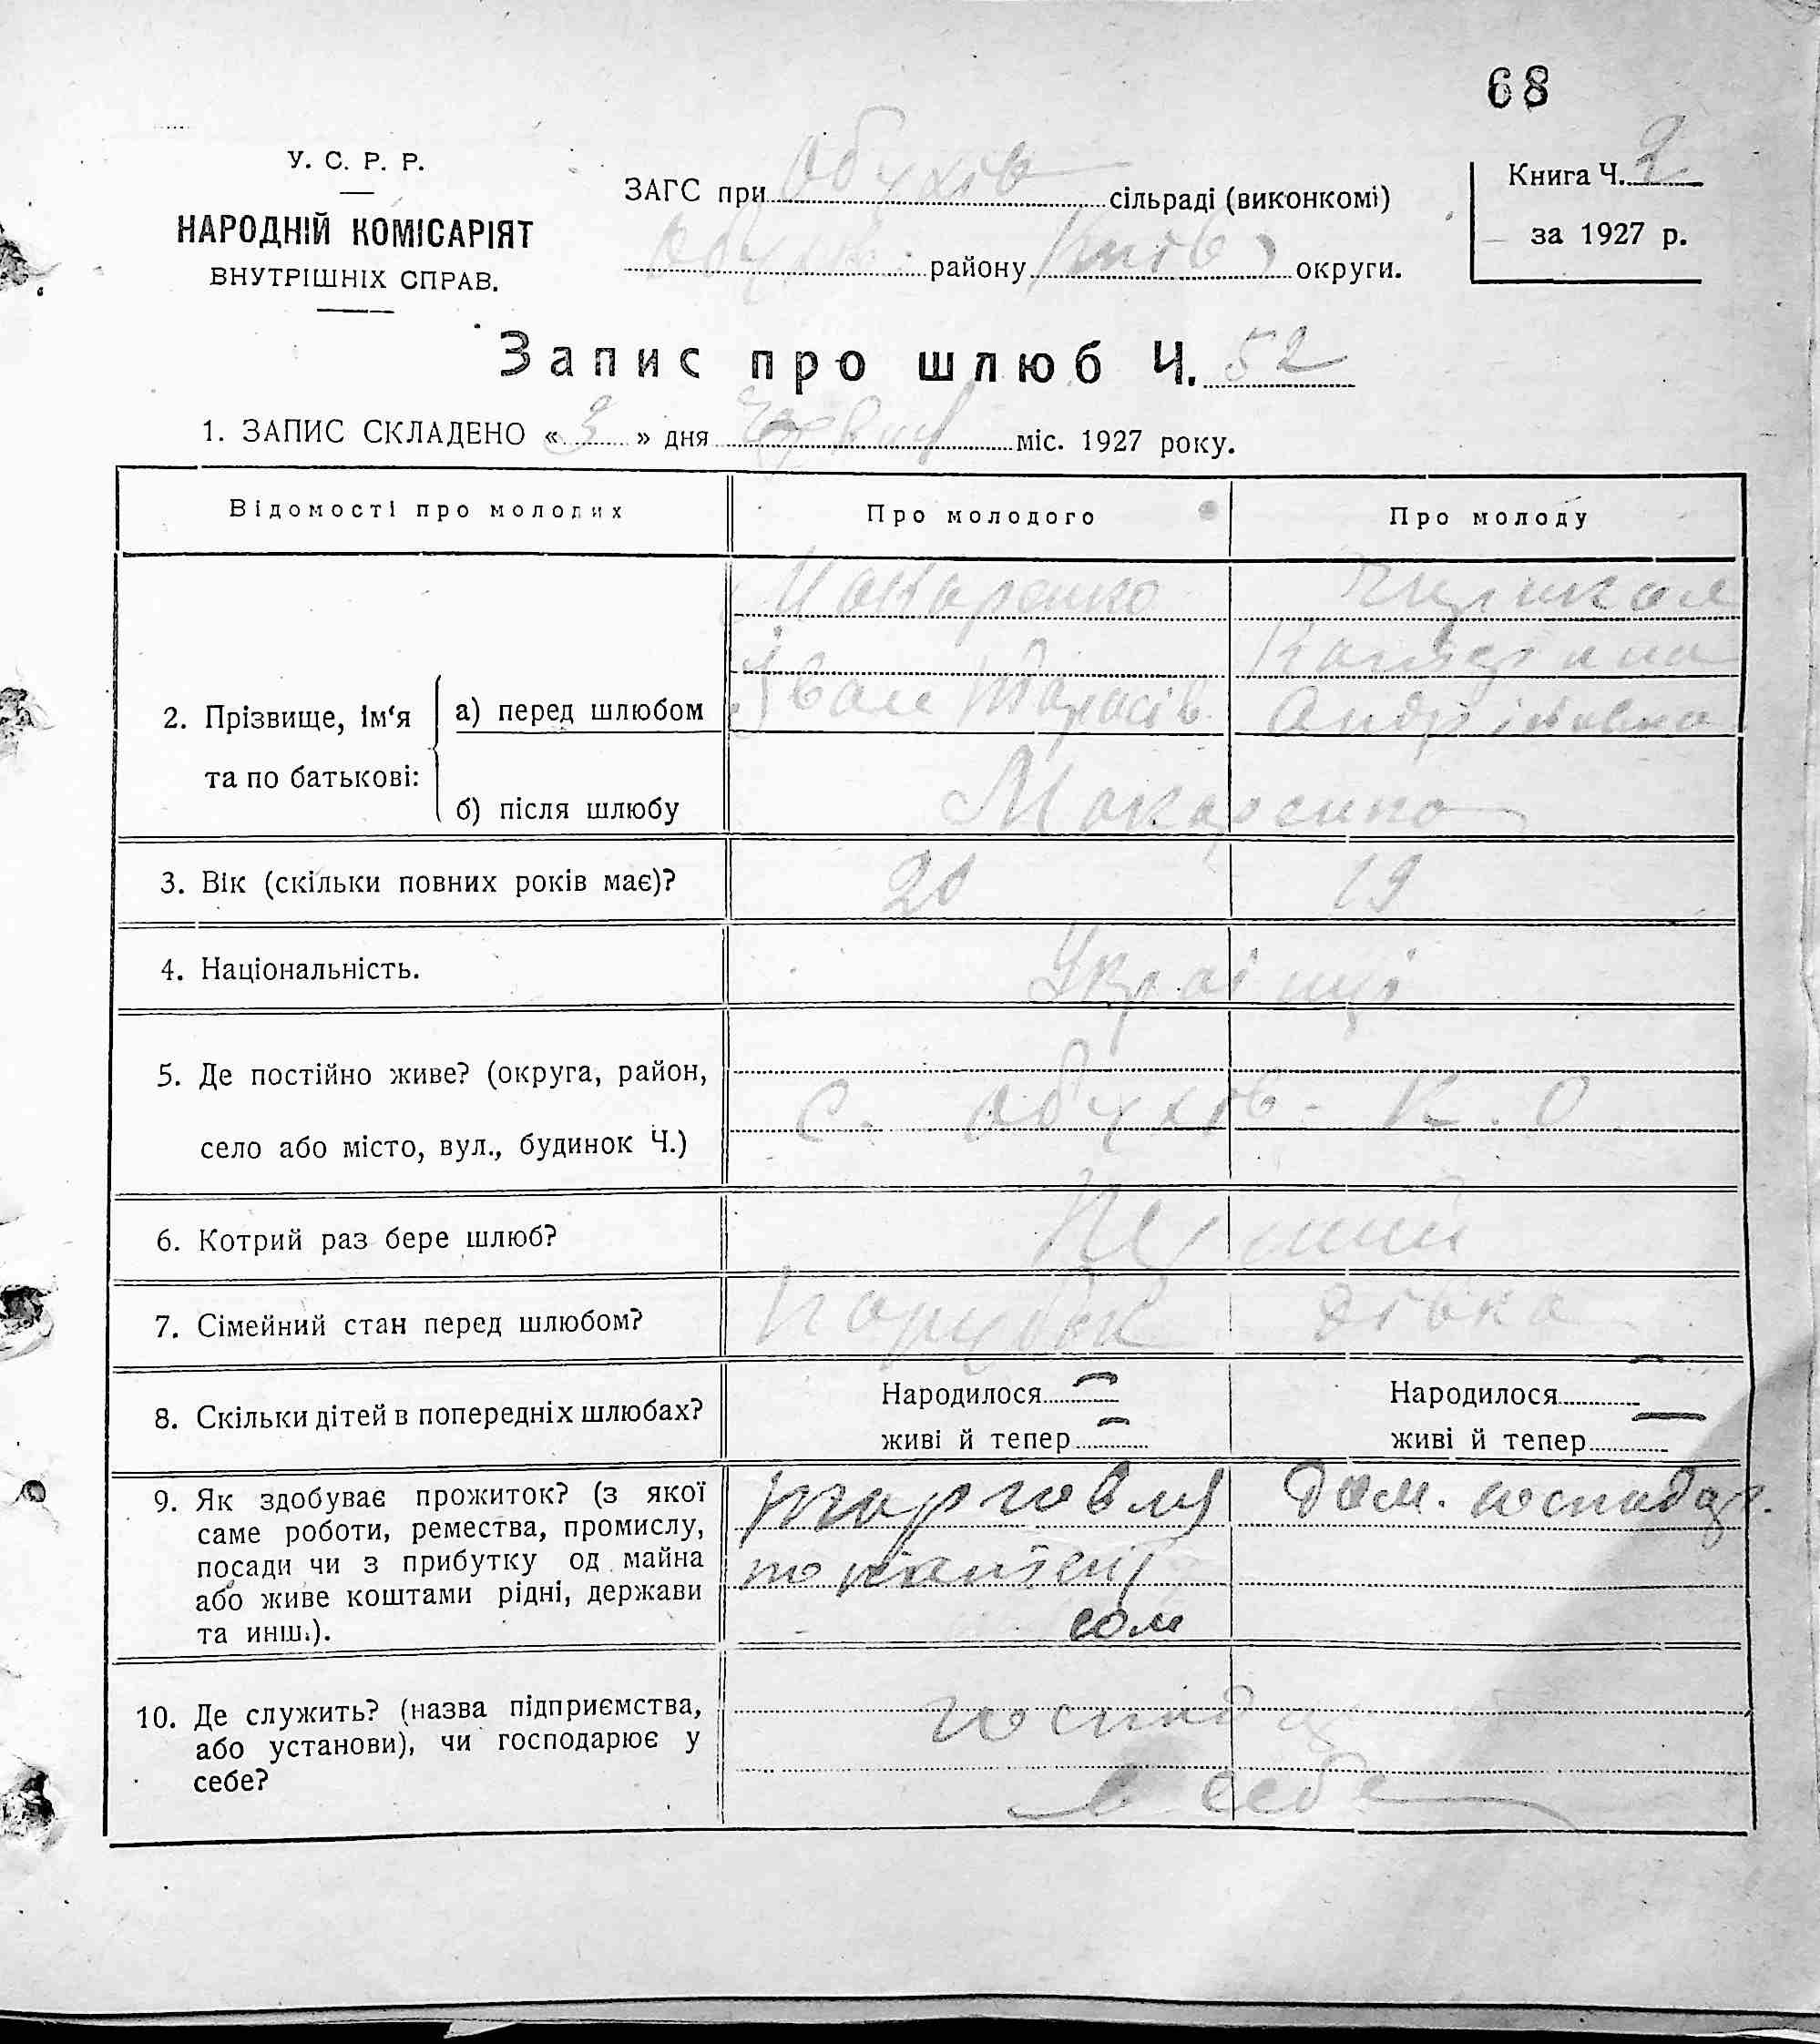 68
У. С. Р. Р.
НАРОДНІЙ КОМІСАРІЯТ
ВНУТРІШНІХ СПРАВ.
ЗАГС при Обухів сільраді (виконкомі)
Обухів. району Київ округи.
Книга Ч. 2
за 1927 р.
Запис про шлюб Ч. 52
1. ЗАПИС СКЛАДЕНО « 3 » дня Червня міс. 1927 року.
Відомості про молодих
Про молодого
Про молоду
2. Прізвище, ім‘я та по батькові:
а) перед шлюбом
Макаренко
Іван Тарасів.
Катерина
Андріївна
б) після шлюбу
Макаренко
3. Вік (скільки повних років має)?
20
19
4. Національність.
Українці
5. Де постійно живе? (округа, район,
село або місто, вул., будинок Ч.)
с. Обухів. К. О
6. Котрий раз бере шлюб?
Перший
7. Сімейний стан перед шлюбом?
Парубок
Дівка
8. Скільки дітей в попередніх шлюбах?
Народилося
живі й тепер
Народилося
живі й тепер
9. Як здобуває прожиток? (з якої
саме роботи, ремества, промислу,
посади чи з прибутку од майна
або живе коштами рідні, держави
та инш.).
торговля
по патент
сом
Дом. господар.
10. Де служить? (назва підприємства,
або установи), чи господарює у
себе?
господар
в себе